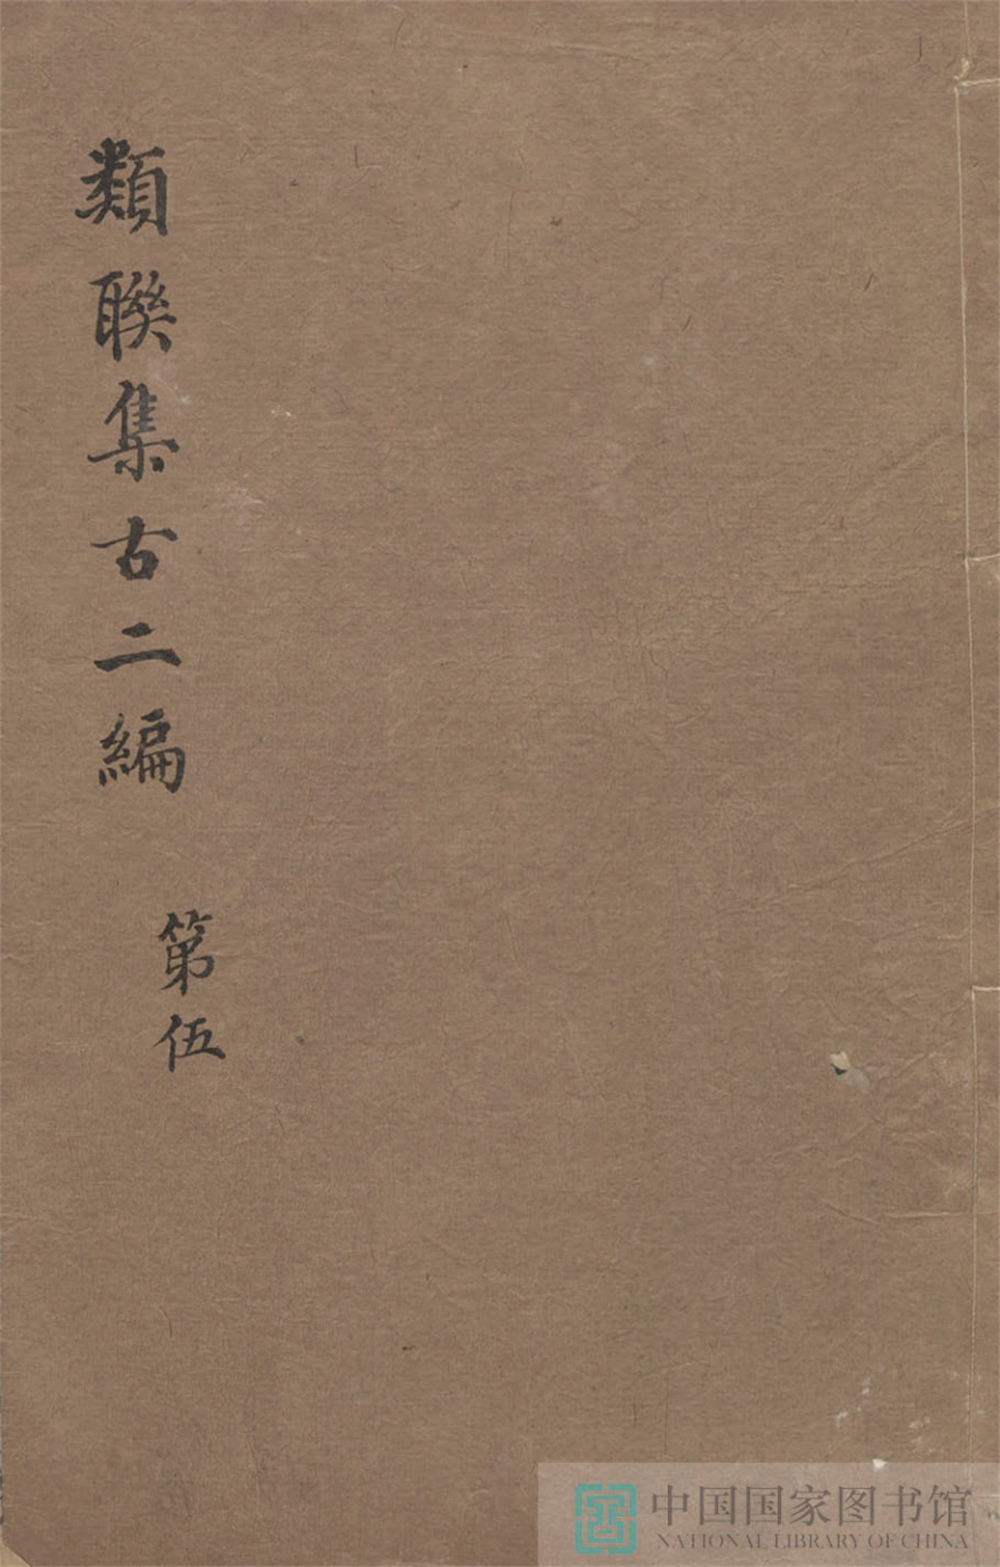 類聯集古二編
第伍
中国国家图书馆
NATIONAL LIBRARY OF CHINA